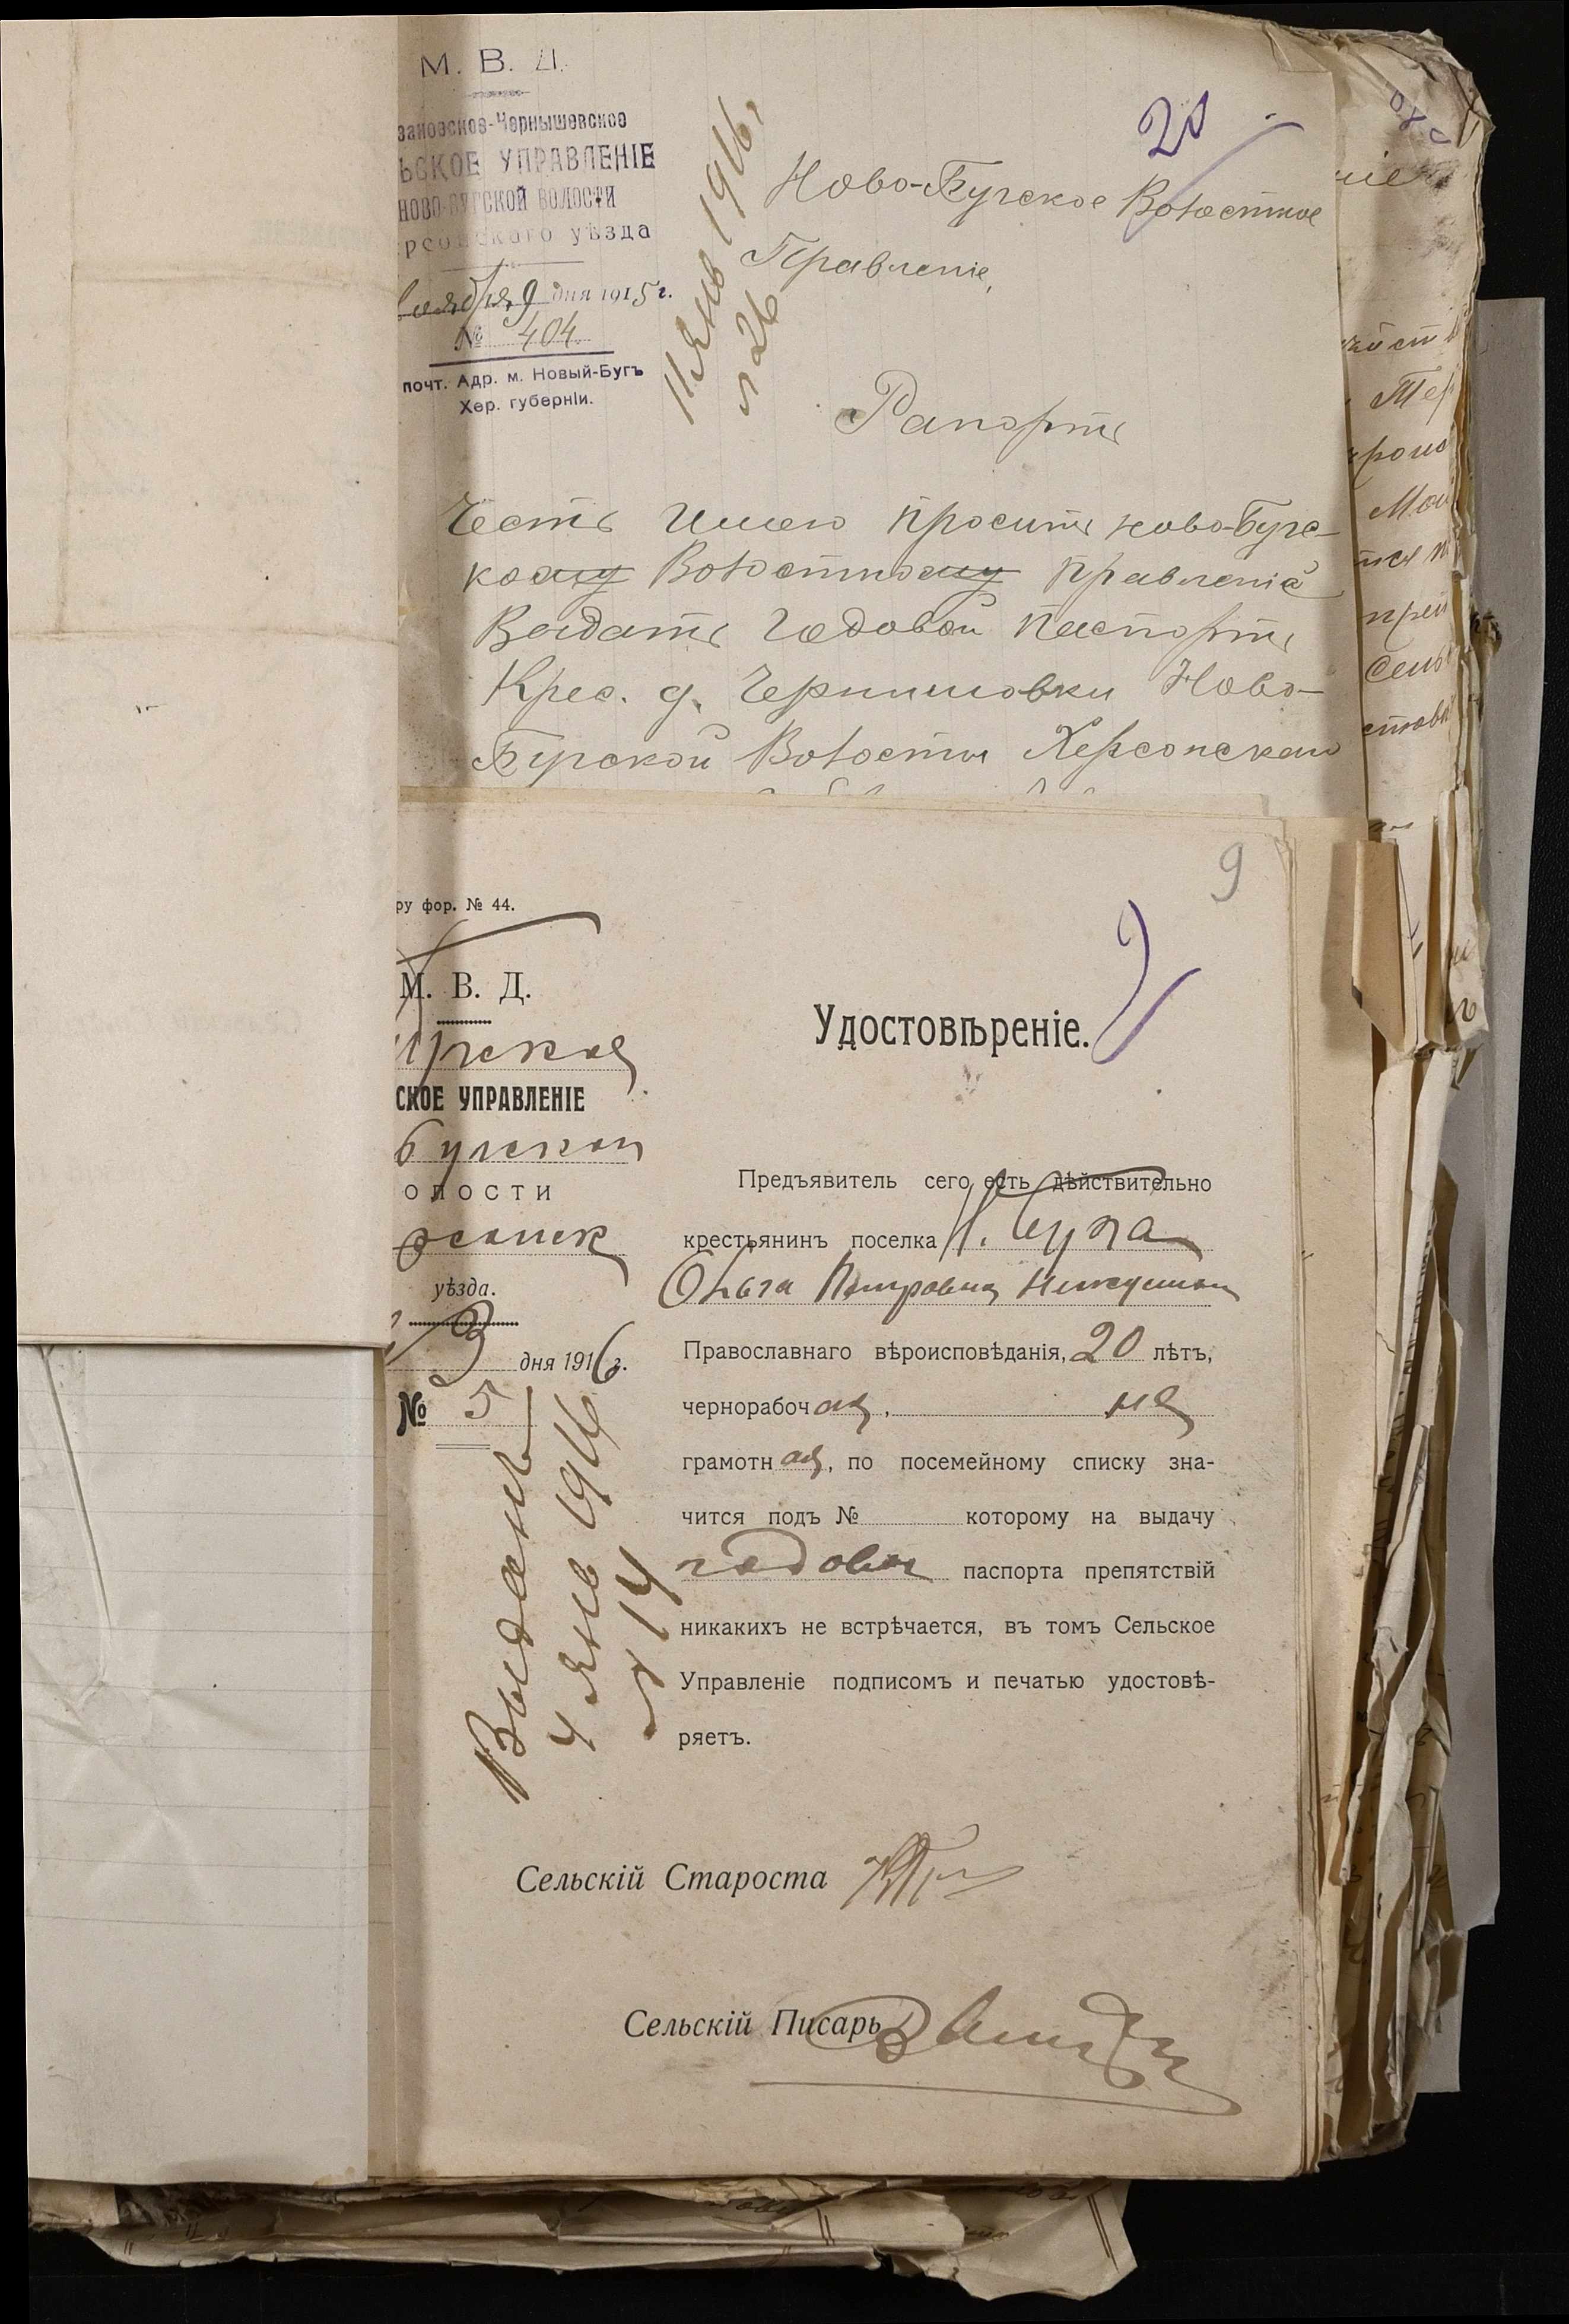 М. В. Д.
зановское-Чернышевское
ЬСКОЕ УПРАВЛЕНІЕ
НОВО-БУГСКОЙ ВОЛОСТИ
рсонскаго уѣзда
9 дня 1915 г.
№ 404
почт. Адр. м. Новый-Бугъ
Хер. губерніи.
11 янв 1916 г
№ 26
20
Ново-Бугское Волостное
Правленіе,
Рапортъ
Честь Имею просить ново-Бугс-
кому Волостному правленіе
Выдать Годовой паспортъ
Крес. д. Ново-
Бугской Волости Херсонскаго
9
ру фор. № 44.
М. В. Д.
СКОЕ УПРАВЛЕНІЕ
бугской
олости
рсонск
уѣзда.
3 дня 1916 г.
№ 5
Выданъ
4 янв 1916
№ 14
9
Удостовѣреніе.
Предъявитель сего есть дѣйствительно
крестьянинъ поселка Н. Буга
Ольга Петровна
Православнаго вѣроисповѣданія, 20 лѣтъ,
чернорабочая, не
грамотная, по посемейному списку зна-
чится подъ № которому на выдачу
годовой паспорта препятствій
никакихъ не встрѣчается, въ томъ Сельское
Управленіе подписомъ и печатью удостовѣ-
ряетъ.
Сельскій Староста
Сельскій Писарь